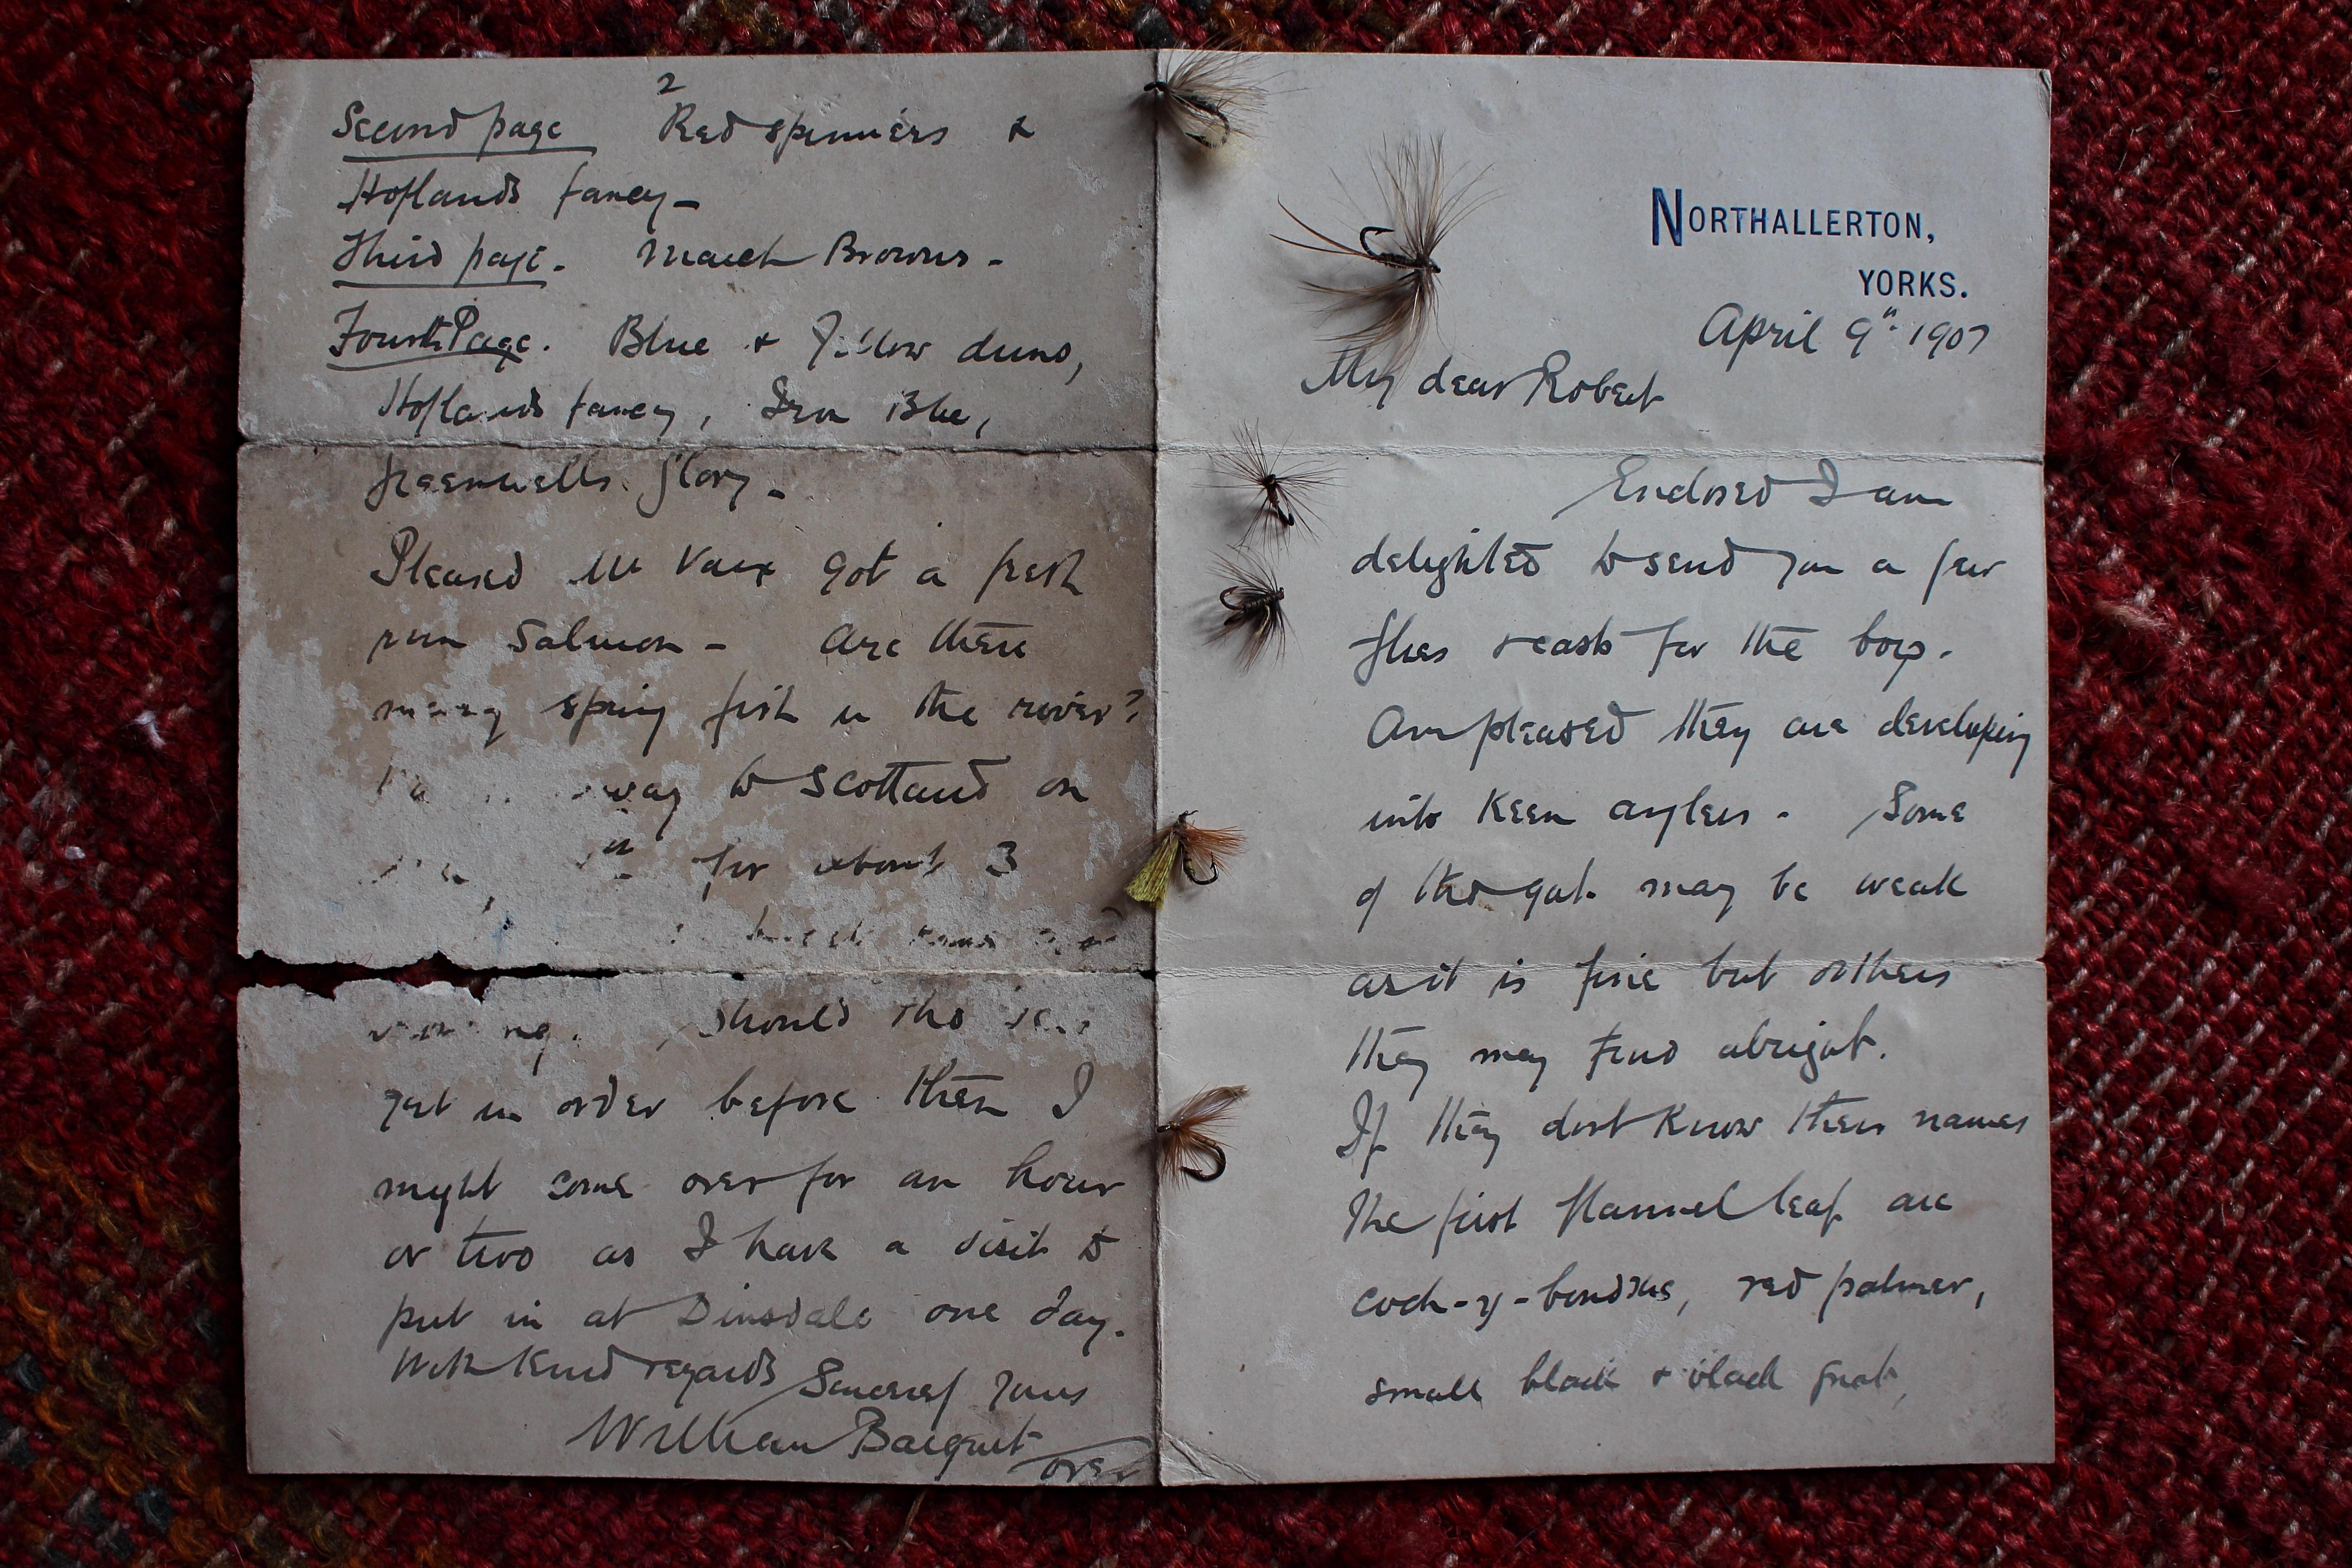 NORTHALLERTON,
YORKS.
April 9th 1907
My dear Robert
Enclosed I am
delighted to send you a few
flies & casts for the boys.
Am pleased they are developing
into keen anglers. Some
of the gut may be weak
as it is fine but others
they may find alright.
If they dont know their names
The first flannel leaf are
coch-y-bondhus, red palmer,
small black & black gnat,
2
Second page Red spinners &
Hoflands fancy -
Third page. March Browns -
Fourth Page. Blue & Yellow duns,
Hoflands fancy, Iron Blue,
Greenwells Glory -
Pleased Mr Vaux got a fresh
run Salmon - Are there
many spring fish in the river?
way to Scotland on
for about 3
Should the
get in order before then I
might come over for an hour
or two as I have a visit to
put in at Dinsdale one day.
With kind regards Sincerely Yours
William
over